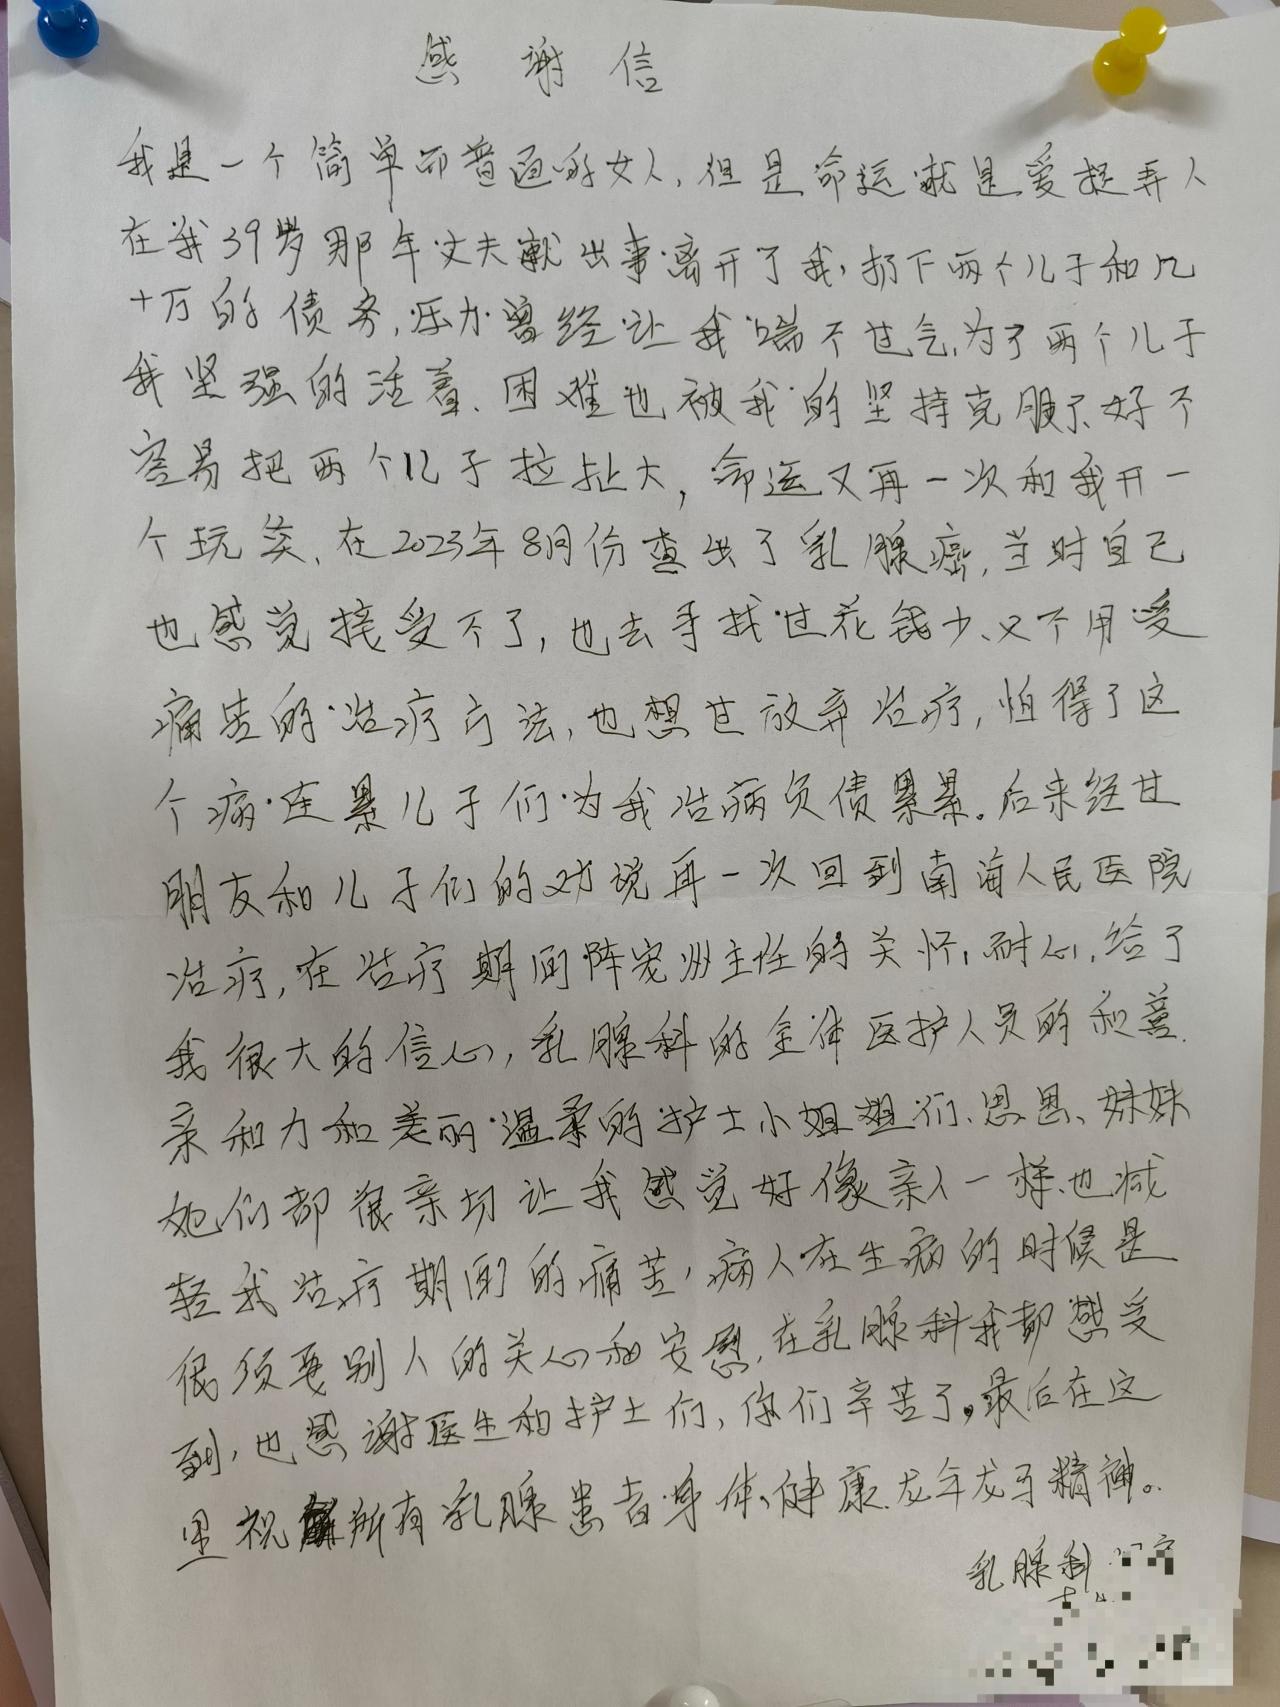 感谢信
我是一个简单而普通的女人，但是命运就是爱捉弄人
在我39岁那年丈夫就出事离开了我，扔下两个儿子和几
十万的债务，压力曾经让我喘不过气，为了两个儿子
我坚强的活着、困难也被我的坚持克服了、好不
容易把两个儿子拉扯大，命运又再一次和我开一
个玩笑、在2023年8月份查出了乳腺癌，当时自己
也感觉接受不了，也去寻找过花钱少、又不用受
痛苦的治疗方法，也想过放弃治疗，怕得了这
个病连累儿子们为我治病负债累累。后来经过
朋友和儿子们的劝说再一次回到南海人民医院
治疗，在治疗期间阵宠州主任的关怀，耐心，给了
我很大的信心，乳腺科的全体医护人员的和善.
亲和力和美丽温柔的护士小姐姐们、思思、妹妹
她们都很亲切让我感觉好像亲人一样、也减
轻我治疗期间的痛苦，病人在生病的时候是
很须要别人的关心和安慰，在乳腺科我都感受
到，也感谢医生和护士们，你们辛苦了。最后在这
里祝所有乳腺患者身体健康、龙年龙马精神。
乳腺科